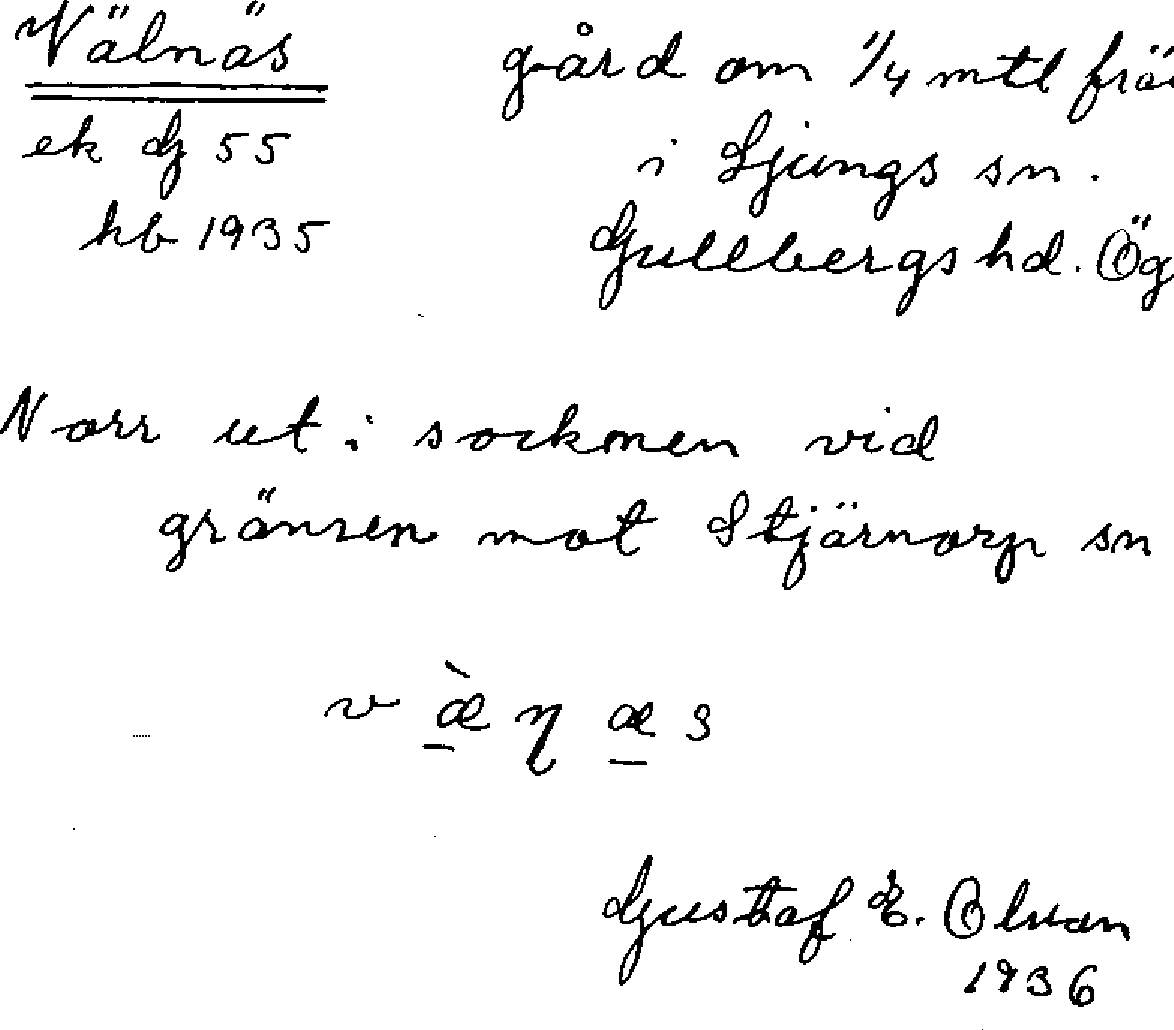 Välnäs gård om 1/4 mtl frä
ek dg 55 i Ljungs sn.
hb 1935 Gullbergs hd. Ög
Norr ut i socknen vid
gränsen mot Stjärnorp sn
v æ̠̀ η æ̠ s
Gustaf E. Olsson
1936